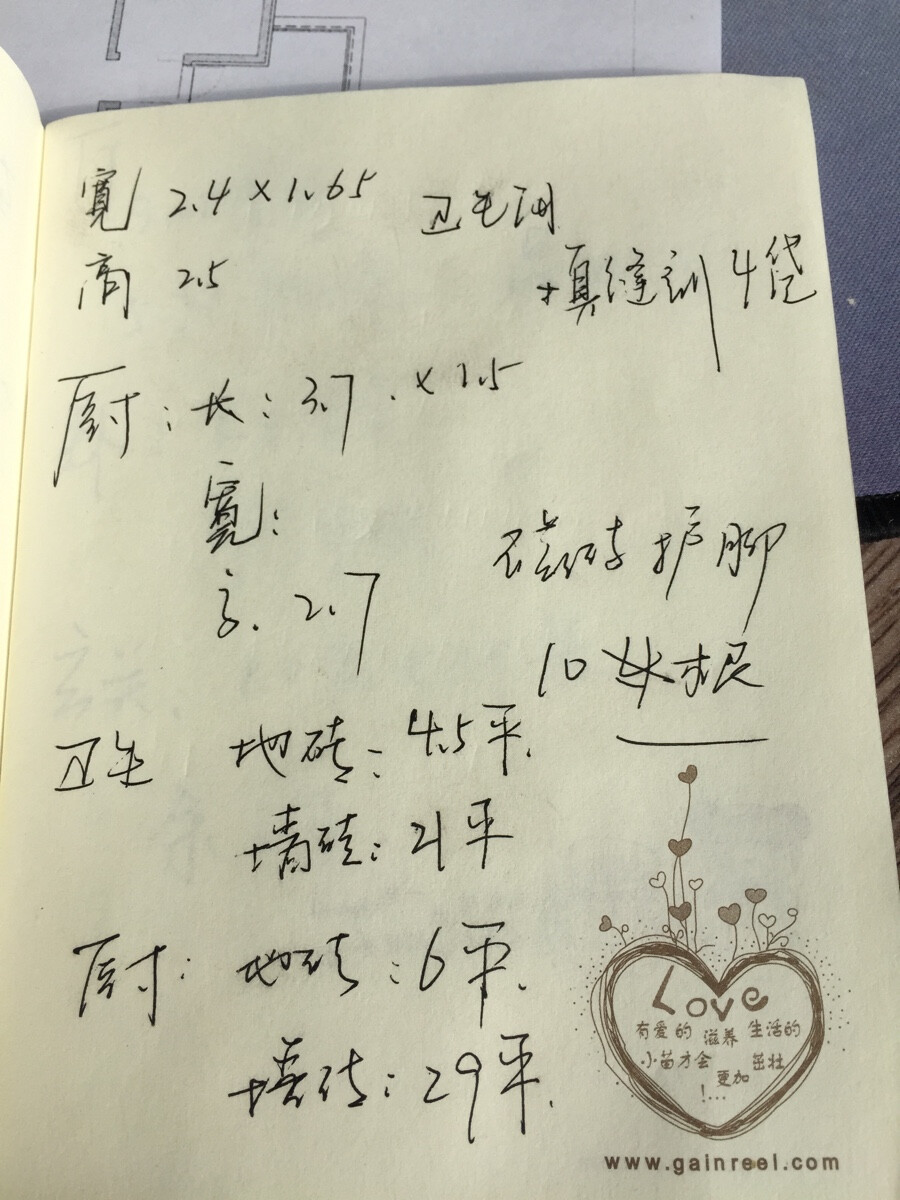 寬 2.4×1.65 卫生间
高 2.5
填缝剂 4袋
厨：长：3.7.×1.5
寬：
高. 2.7
磁砖护脚
10 根
卫生 地砖：4.5平.
墙砖：21平
厨: 地砖：6平.
墙砖：29平.
Love
有爱的 滋养 生活的
小苗才会 更加 茁壮
!...
www.gainreel.com